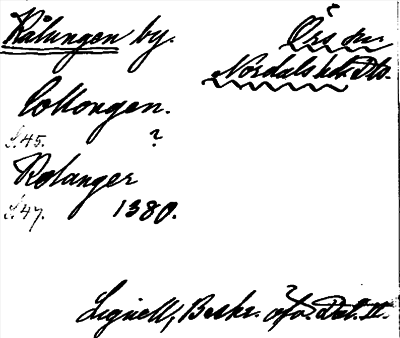 Rålungen by. Örs sn.
Nordals hd. Dls.
Collongen.
S. 45. ?
Rolanger
S. 47. 1380.
Lignell, Beskr. ofv. Dal. II.